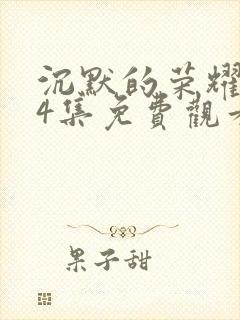 沉默的荣耀
4集免費觀
果子甜